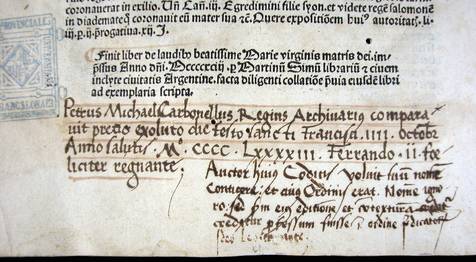 coronauerat in exilio. Un̄ Can̄.iij. Egredimini filie syon.et videte regē salomonē
in diademate q̄ coronauit eū mater sua ꝛc̄. Quere expositionem hui⁹ autoritat͛.li.
iij.p.ij.p̄rogatiua.xij.J.
Finit liber de laudib⁹ beatissime Marie virginis matris dei.im
p̄ssus Anno dn̄i.Mccccxciij.ꝑ Martinū Simū librariū ꞇ ciuem
inclyte ciuitatis Argentine.facta diligenti collatiōe p̄uia eiusdē libri
ad exemplaria scripta.
Petrus Michael Carbonellus Regius Archivariꝰ compara
uit precio exoluto die festo sancti Francisci .IIII. octobr͛
Anno salutis .M. CCCC. LXXXXIII. Ferrando .ii. foe
liciter regnante.
Auctor huiꝰ Codicis noluit suū nomē
et cuiꝰ Ordinis erat. Nomē igno
ro. sed
ordine p̄dicatoꝝ
PROVINCIAL
BARCELONA